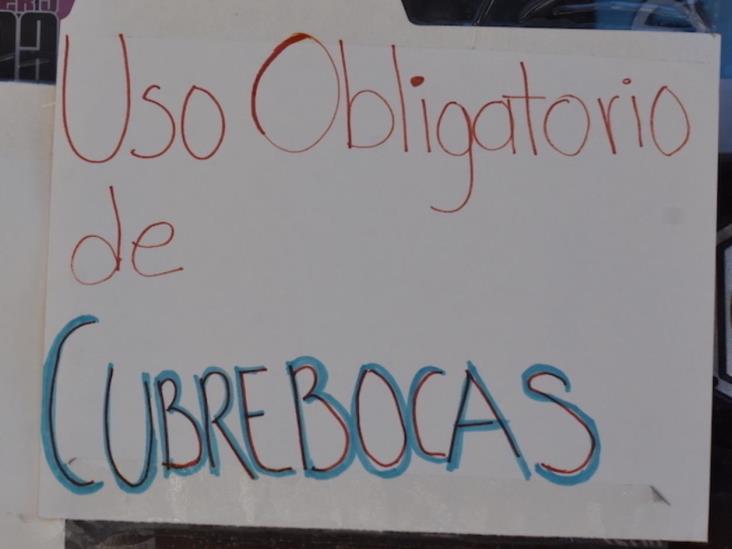 Uso Obligatorio
de
CUBREBOCAS